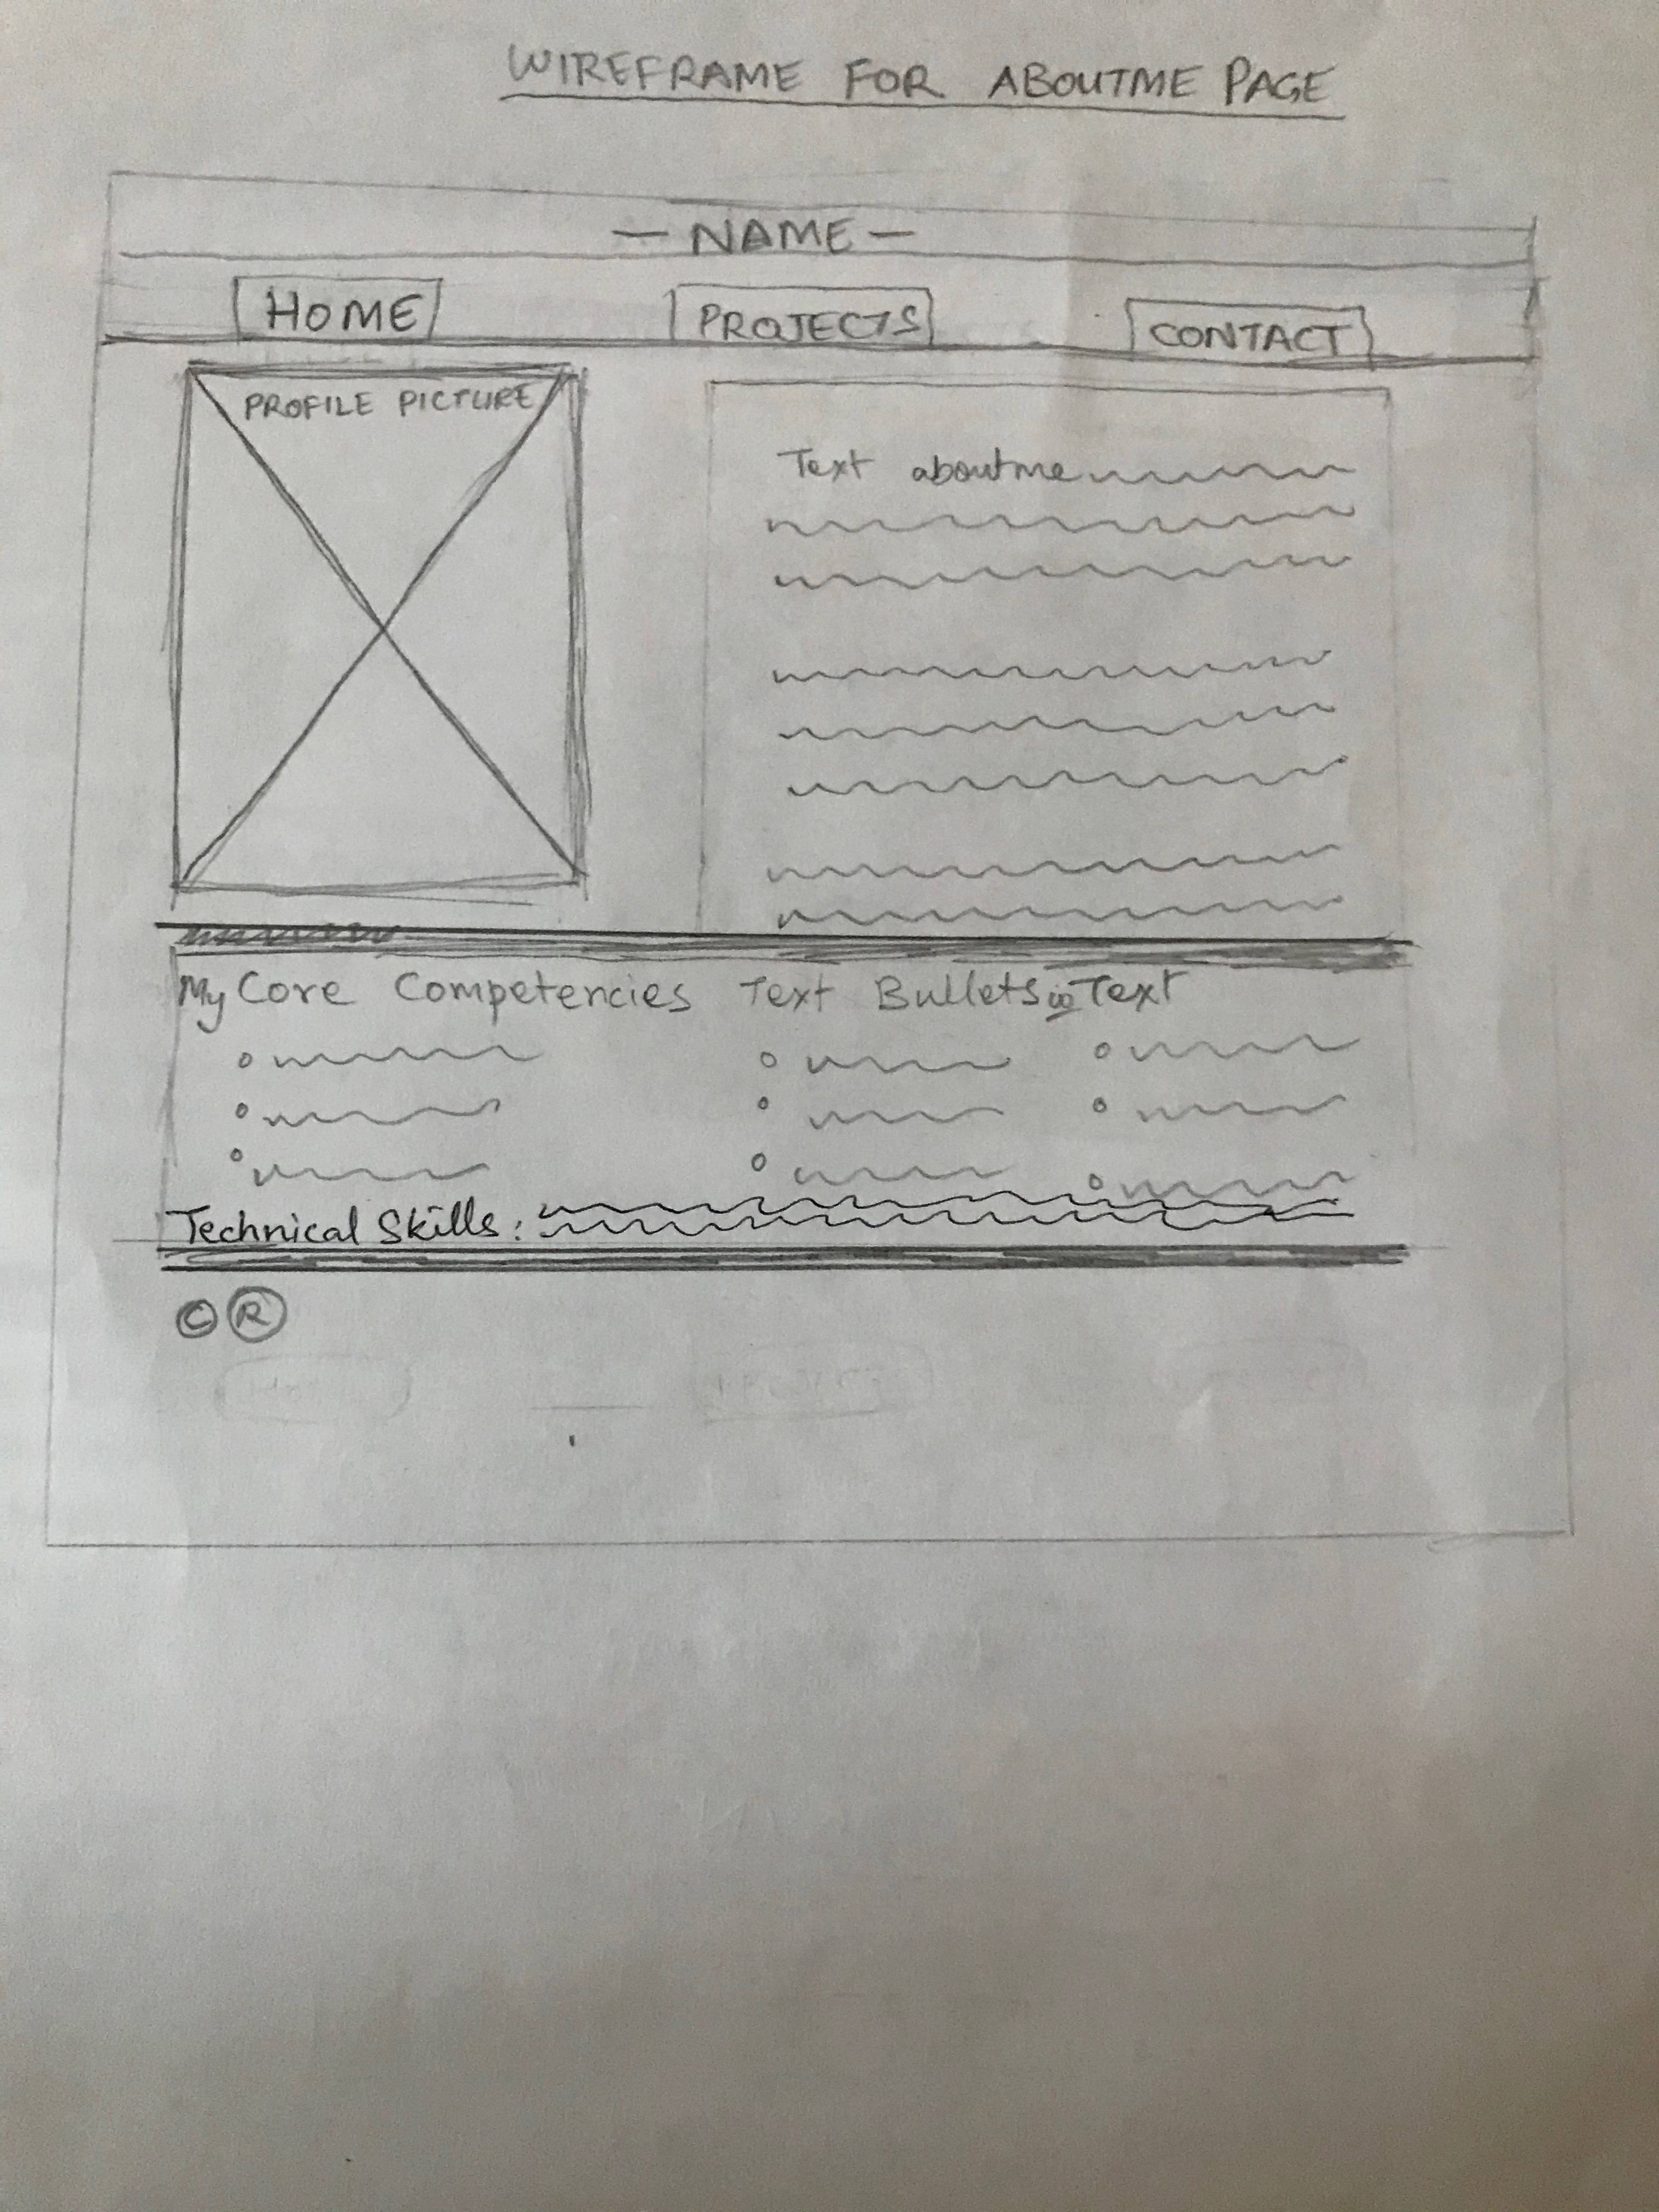 WIREFRAME FOR ABOUTME PAGE
— NAME —
HOME PROJECTS CONTACT
PROFILE PICTURE
Text aboutme
My Core Competencies Text Bullets in Text
Technical Skills:
© ®